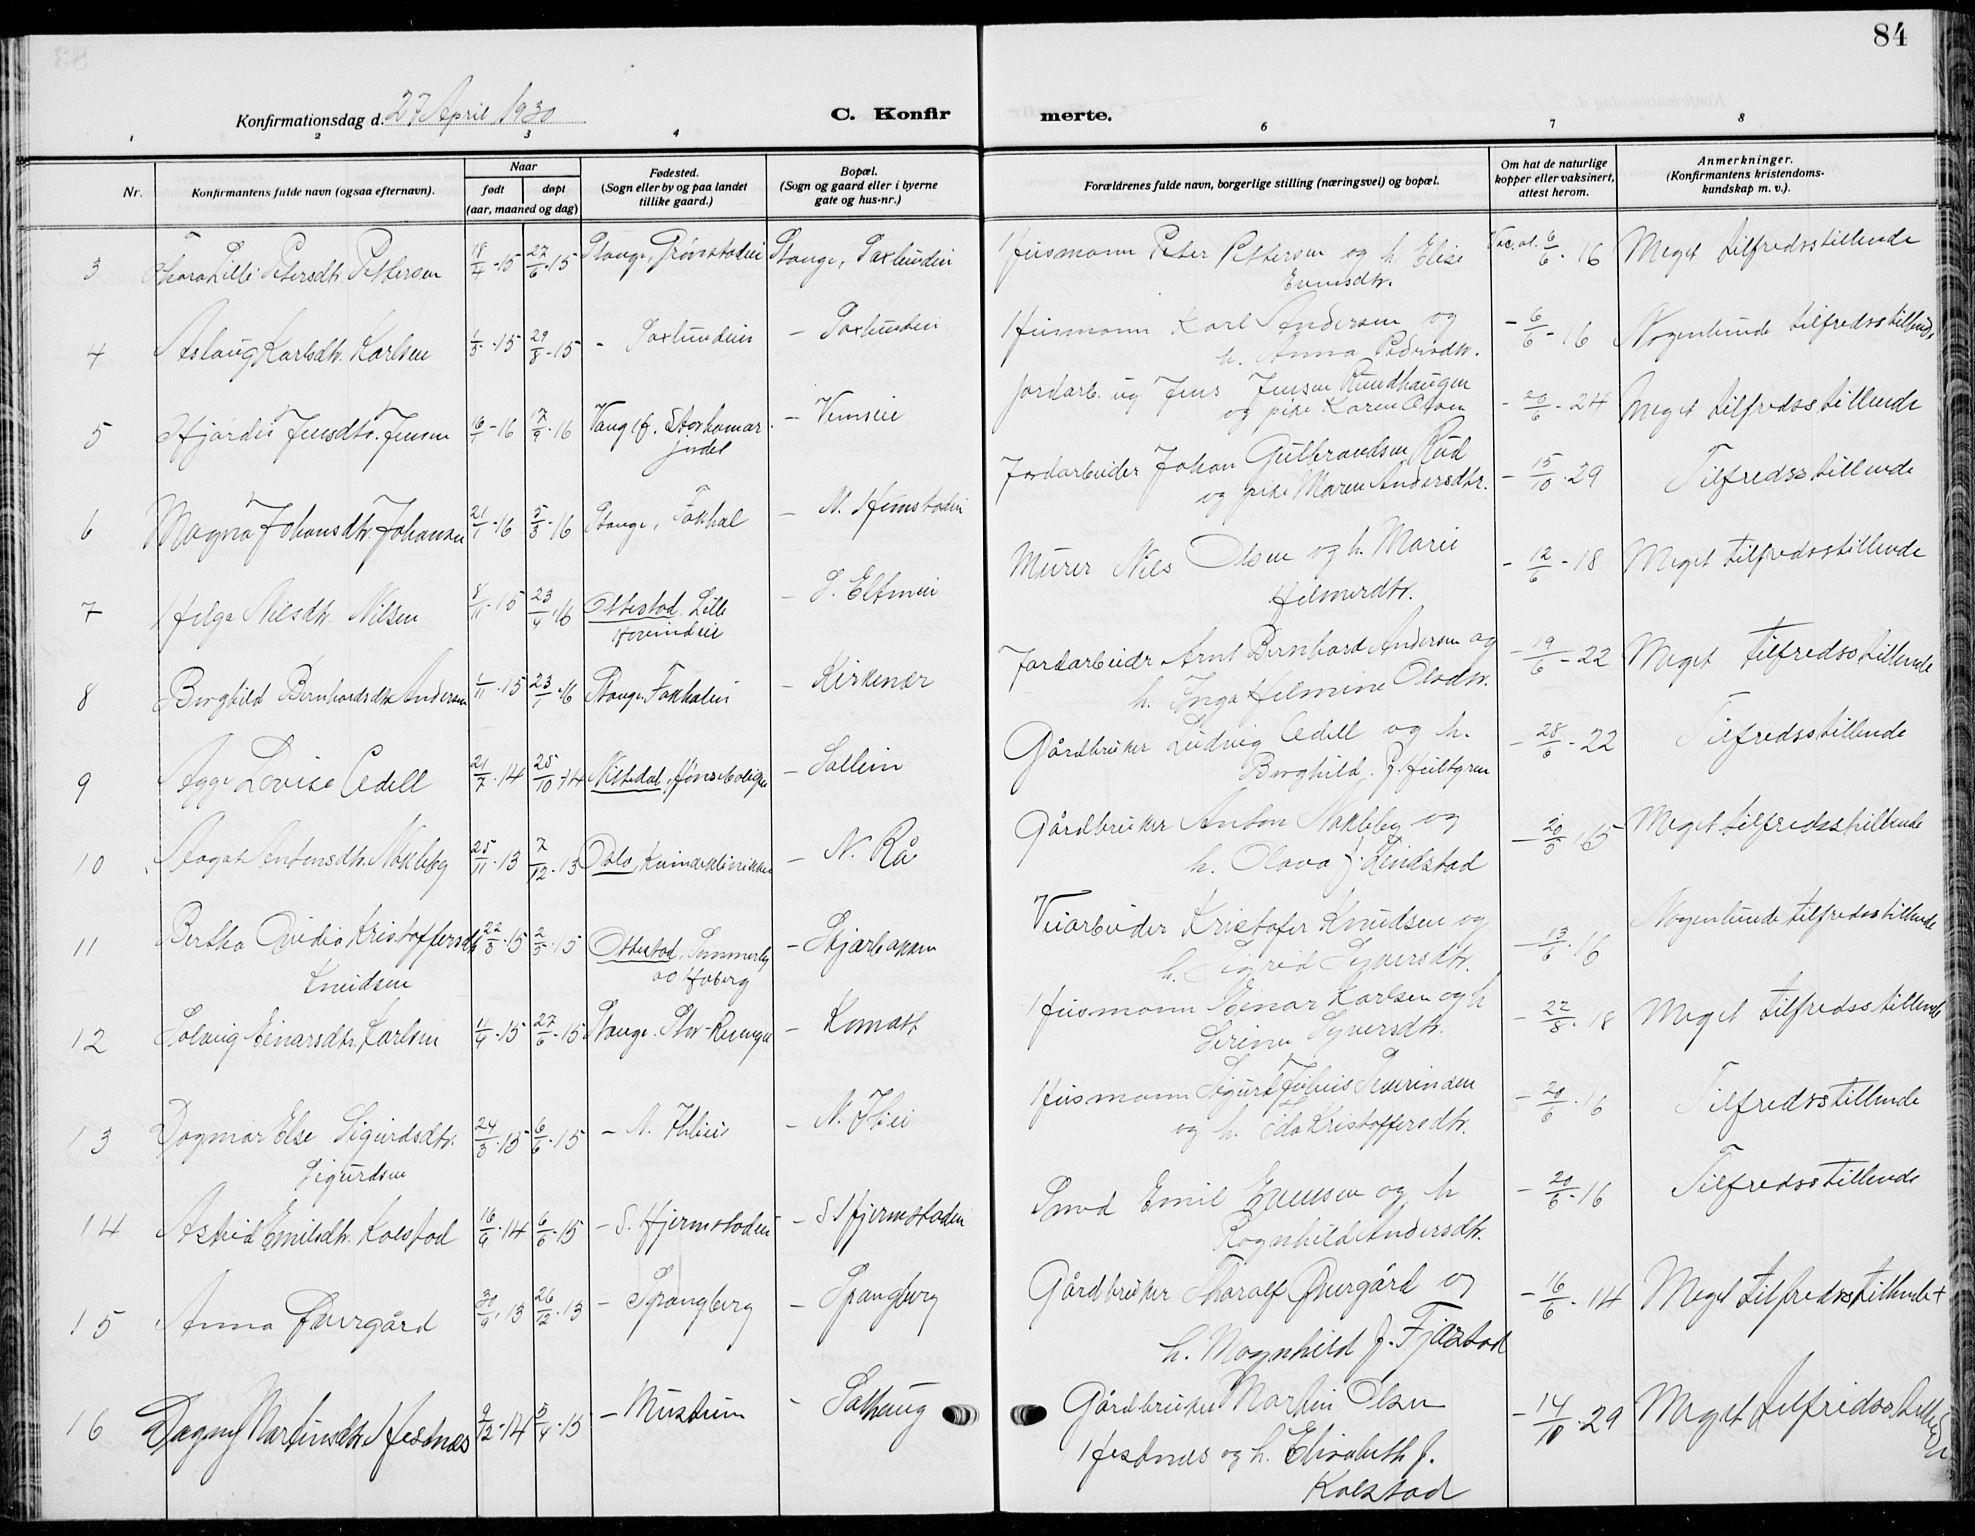 84
Konfirmationsdag d. 27 April 1930
C. Konfirmerte.
1 2 3 4 6 7 8
Nr.
Konfirmantens fulde navn (ogsaa efternavn).
Naar
født
døpt
(aar, maaned og dag)
Fødested.
(Sogn eller by og paa landet
tillike gaard.)
Bopæl.
(Sogn og gaard eller i byerne
gate og hus-nr.)
Forældrenes fulde navn, borgerlige stilling (næringsvei) og bopæl.
Om hat de naturlige
kopper eller vaksinert,
attest herom.
Anmerkninger.
(Konfirmantens kristendoms-
kundskap m. v.).
3 Petersdtr. Pettersen 27/6 15 Stange, Stange, Husmann Peter Pettersen og h. Elise 6/6 16 Meget tilfredsstillende
Evensdtr.
4 Aslaug Karlsdtr. Karlsen 29/8 15 - - Husmann Karl Andersen og - 6/6 - 16 Nogenlunde tilfredsstillende
h. Anna Pedersdtr.
5 Hjørdis Jensdtr. Jensen 16/1 - 16 7/9 16 Vang Hf. Storhamar - Vemseie Jordarb. ug Jens Jensen Rundhaugen - 20/6 - 24 Meget tilfredsstillende
jordet og pike Karen Olsen
6 Magna Johansdtr. Johansen 21/1 - 16 5/3 16 Stange, Fokhol - N. Hemstadeie Jordarbeider Johan Gulbrandsen Rud - 15/10 29 Tilfredsstillende
og pike Maren Andersdtr.
7 Helga Nilsdtr. Nilsen 8/11 15 23/4 16 Ottestad, Lille - S. Eltuneie Murer Nils Olsen og h. Marie - 12/6 - 18 Meget tilfredsstillende
Hovindeie Helmerdtr.
8 Borghild Bernhardsdtr. Andersen 15 23/1 16 Stange, Fokholeie - Kirkenær Jordarbeider Arnt Bernhard Andersen og - 19/6 - 22 Meget tilfredsstillende
h. Inga Helmine Olsdtr.
9 Aage Lovise Cedell 21/7 14 25/10 14 Nittedal, - Sollein Gårdbruker Ludvig Cedell og h. - 28/6 - 22 Tilfredsstillende
Borghild f. Hultgren
10 Aagot Antonsdtr. Nokleby 25/11 13 7/12 13 Oslo, Kvindeklinikken - N. Rå Gårdbruker Anton Nokleby og - 15 Meget tilfredsstillende
h. Olava f. Lindstad
11 Bertha Ovidia Kristoffersdtr. 15 15 Ottestad, Sommerly - Skjærbakken Veiarbeider Kristofer Knudsen og - 13/6 16 Nogenlunde tilfredsstillende
Knudsen Hoberg h. Sigrid Syversdtr.
12 Solveig Einarsdtr. Karlsen 15 27/6 15 Stange, - Komast Husmann Einar Karlsen og h - 22/8 18 Meget tilfredsstillende
Serine Syversdtr.
13 Dagmar Else Sigurdsdtr. 24/3 15 6/6 15 - N. - N. Husmann Sigurd Julius - 20/6 16 Tilfredsstillende
Sigurdsen og h. Ida Kristoffersdtr.
14 Astrid Emilsdtr. Kolstad 16/9 14 6/6 15 - S. Hjermstadeie - S Hjermstadeie Smed Emil Evensen og h - 20/6 16 Tilfredsstillende
Ragnhild Andersdtr.
15 Anna Øvergård 30/9 13 26/12 13 - Spangberg - Spangberg Gårdbruker Tharalf Øvergård og - 16/6 - 14 Meget tilfredsstillende +
h. Magnhild f. Fjæstad
16 Dagny Martinsdtr. Hesnæs 9/12 14 5/4 15 - Mustium - Solhaug Gårdbruker Martin Olsen - 14/10 29 Meget tilfredsstillende
Hesnæs og h. Elisabeth f.
Kolstad